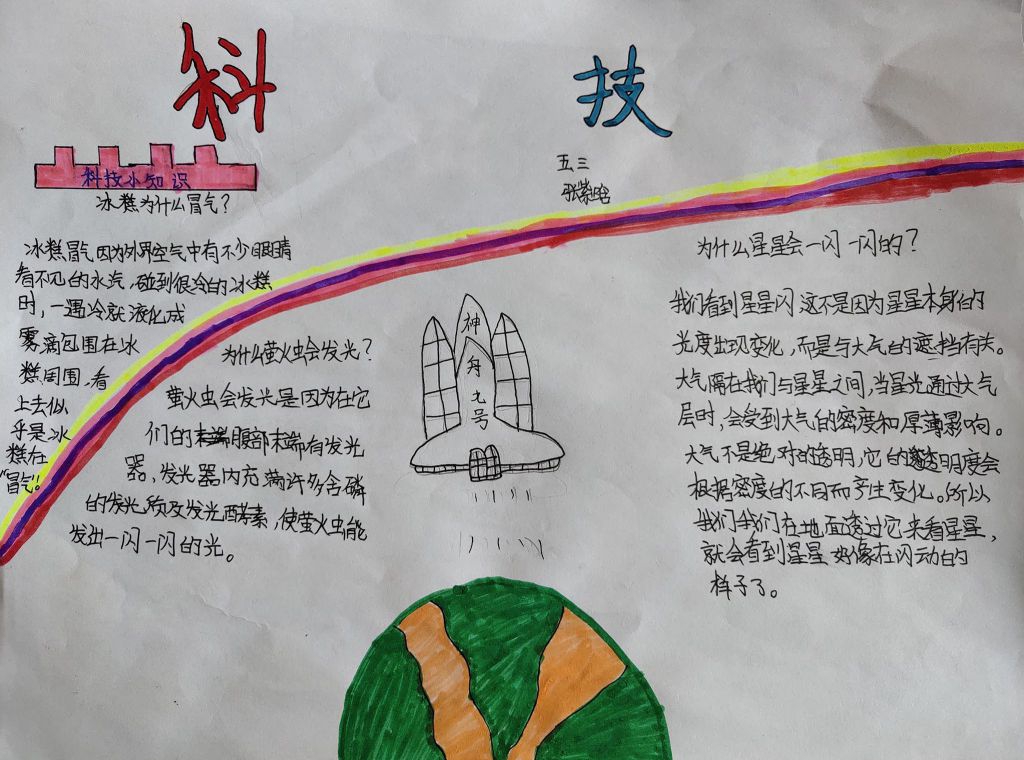 科技
五三
张紫晗
科技小知识
冰糕为什么冒气？
冰糕冒气因为外界空气中有不少眼睛
看不见的水汽，碰到很冷的冰糕
时，一遇冷就液化成
雾滴包围在冰
糕周围，看
上去似
乎是冰
糕在
“冒气”！
为什么萤火虫会发光？
萤火虫会发光是因为在它
们的腹部末端有发光
器，发光器内充满许多含磷
的发光质及发光酵素，使萤火虫能
发出一闪一闪的光。
神
舟
九
号
为什么星星会一闪一闪的？
我们看到星星闪这不是因为星星本身的
光度出现变化，而是与大气的遮挡有关。
大气隔在我们与星星之间，当星光通过大气
层时，会受到大气的密度和厚薄影响。
大气不是绝对的透明，它的透明度会
根据密度的不同而产生变化。所以
我们我们在地面透过它来看星星，
就会看到星星好像在闪动的
样子了。